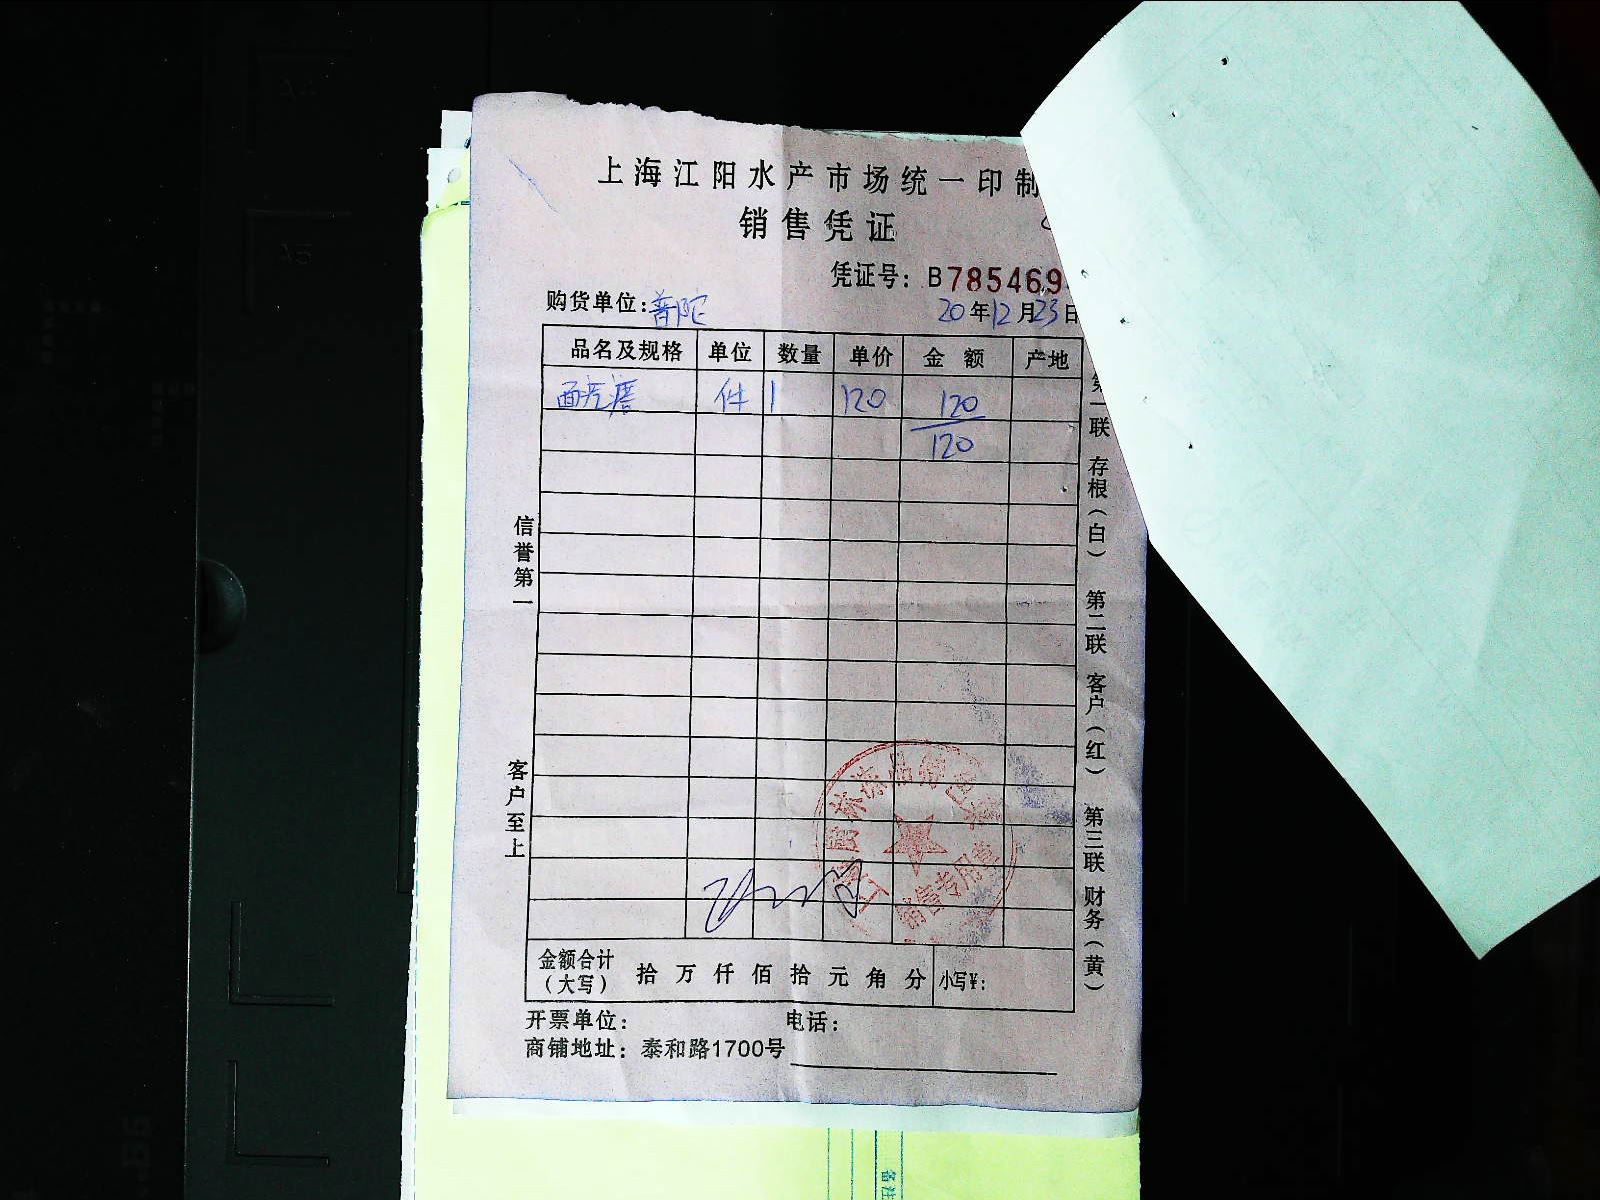 上海江阳水产市场统一印制
销售凭证
凭证号：B785469
购货单位：普陀
20年12月23日
品名及规格 单位 数量 单价 金额 产地
件 1 120 120
120
信誉第一
客户至上
第一联 存根（白） 第二联 客户（红） 第三联 财务（黄）
销售专用章
金额合计（大写） 拾 万 仟 佰 拾 元 角 分 小写¥：
开票单位： 电话：
商铺地址：泰和路1700号
备注